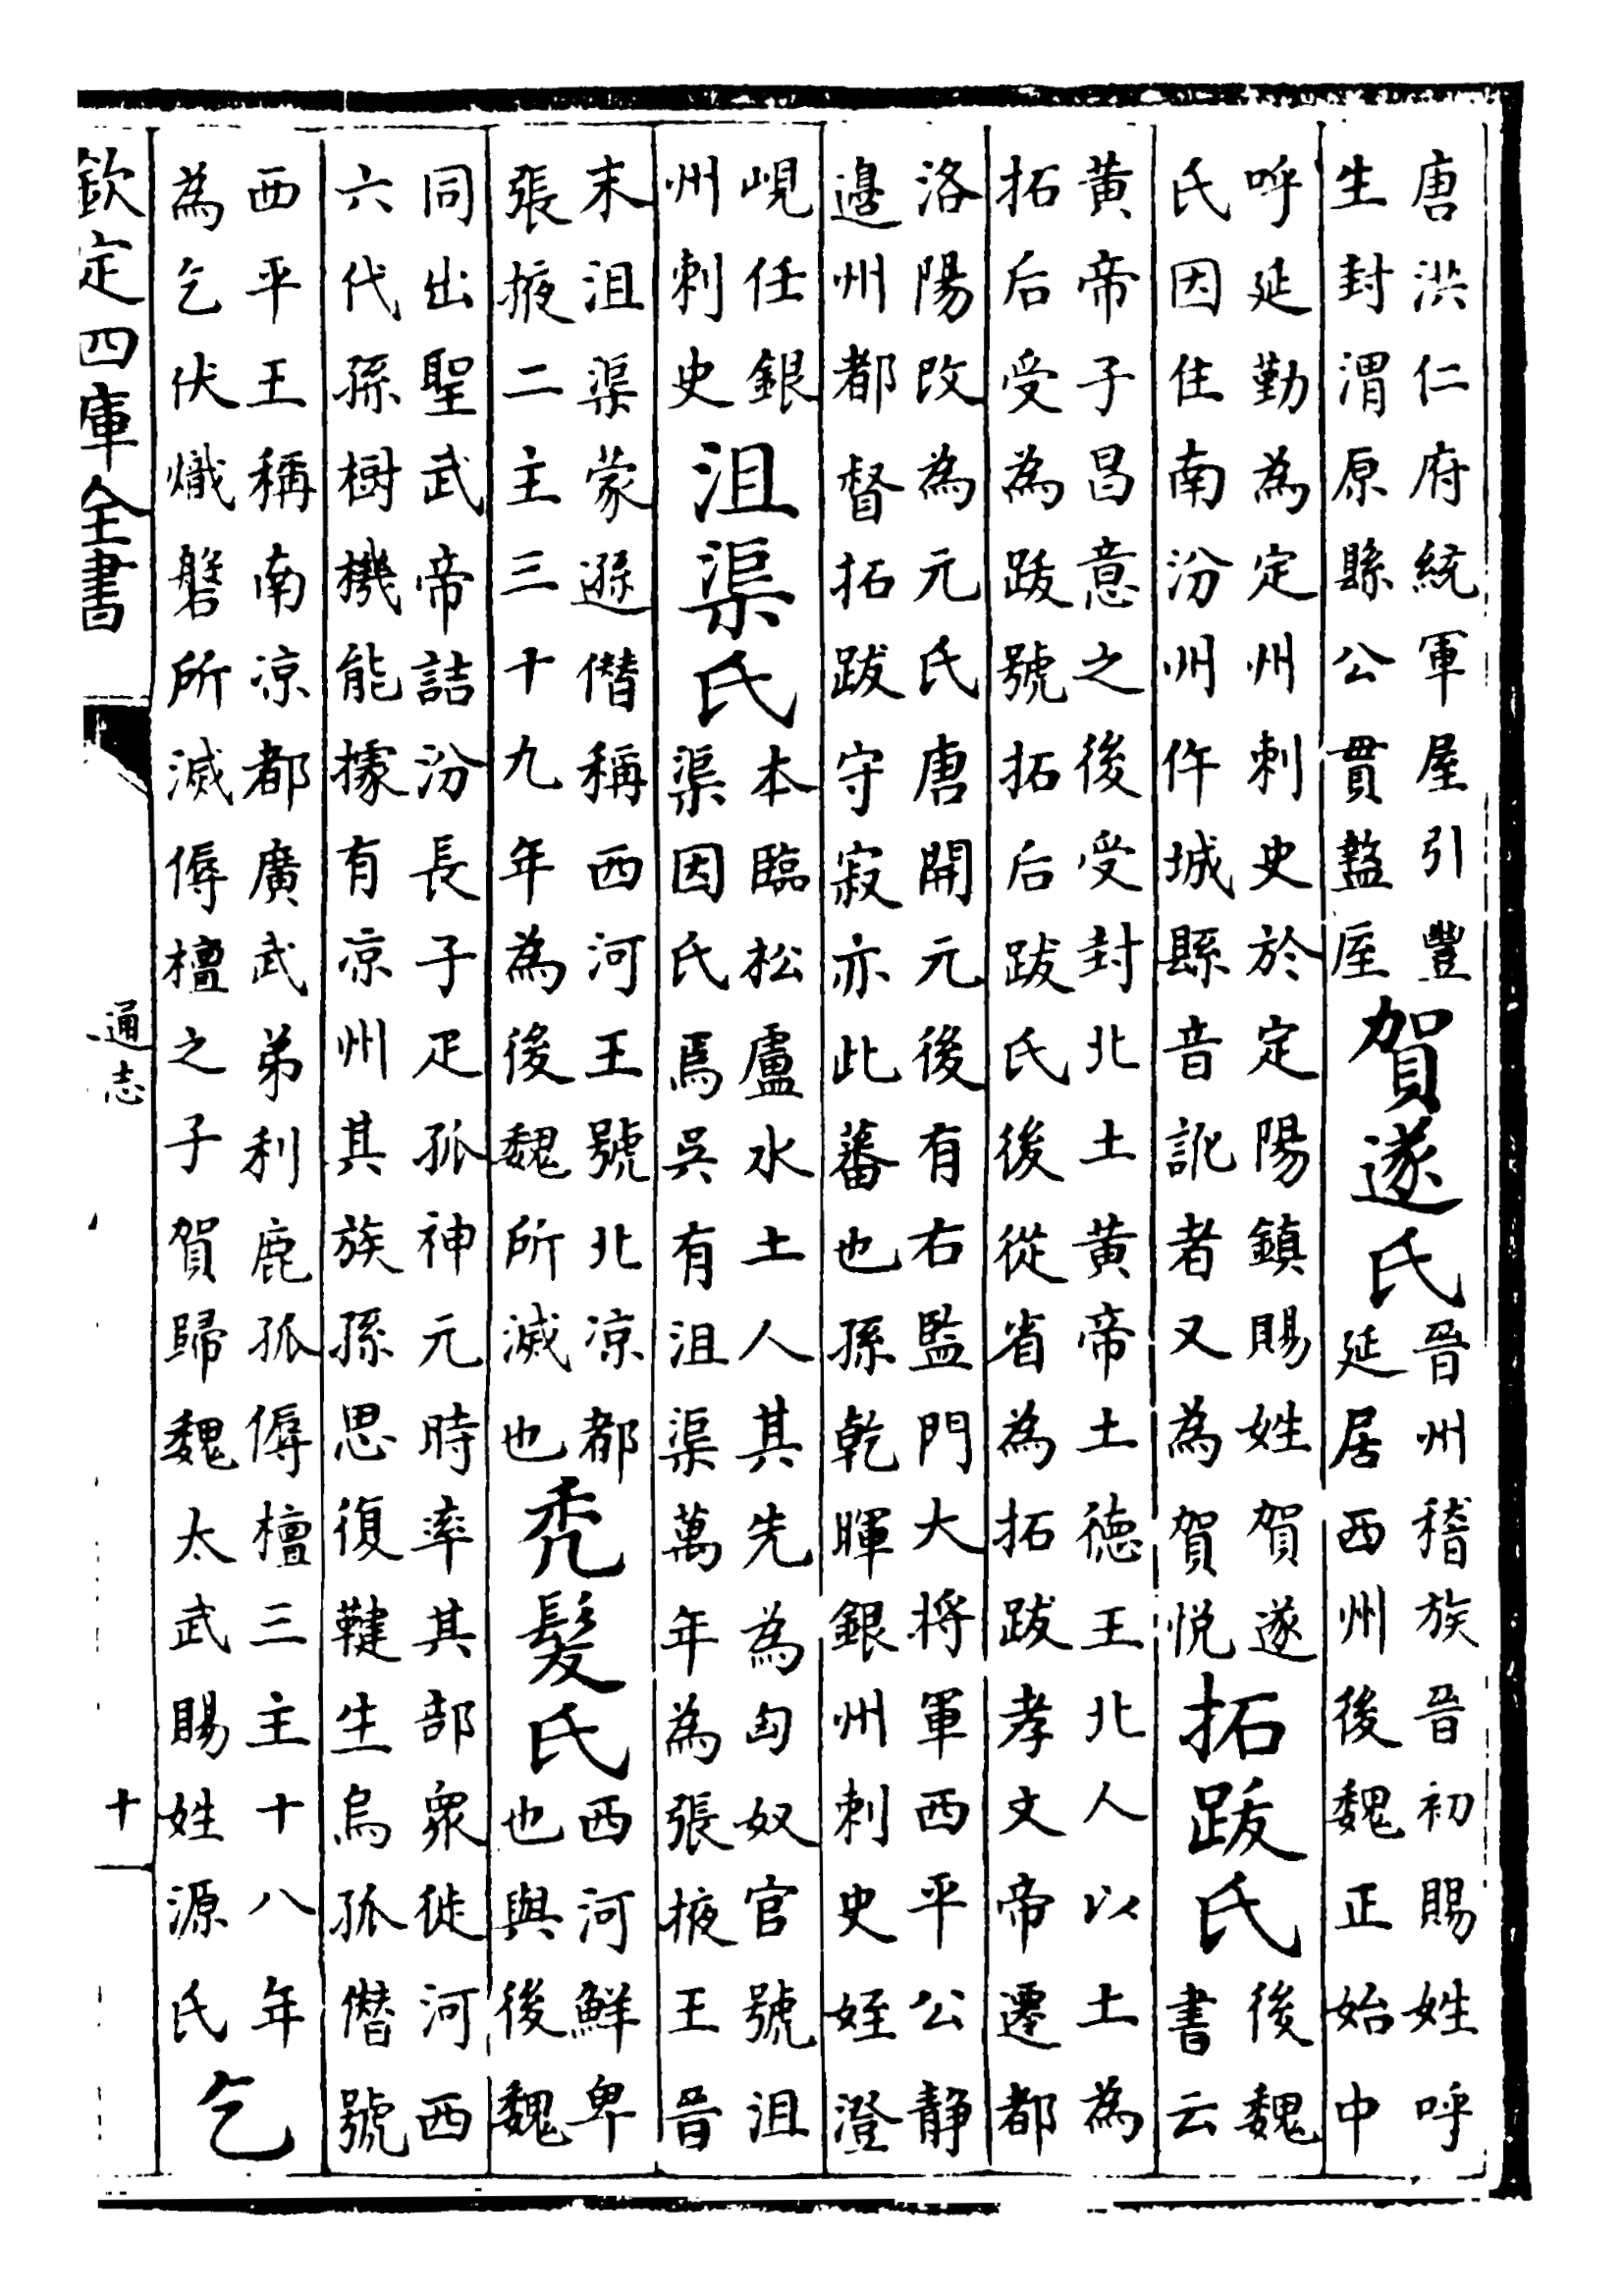 唐洪仁府統軍屋引豐
生封渭原縣公貫盩厔
賀遂氏
晉州稽族晉初賜姓呼
延居西州後魏正始中
呼延勤為定州刺史於定陽鎮賜姓賀遂
氏因住南汾州仵城縣音訛者又為賀悅
拓跋氏
後魏
書云
黄帝子昌意之後受封北土黄帝土德王北人以土為
拓后受為跋號拓后跋氏後從省為拓跋孝文帝遷都
洛陽改為元氏唐開元後有右監門大將軍西平公静
邉州都督拓跋守寂亦此蕃也孫乾暉銀州刺史姪澄
峴任銀
州刺史
沮渠氏
本臨松盧水土人其先為匈奴官號沮
渠因氏焉吳有沮渠萬年為張掖王晉
末沮渠蒙遜僭稱西河王號北凉都
張掖二主三十九年為後魏所滅也
禿髮氏
西河鮮卑
也與後魏
同出聖武帝詰汾長子疋孤神元時率其部衆徙河西
六代孫樹機能據有凉州其族孫思復鞬生烏孤僭號
西平王稱南凉都廣武弟利鹿孤傉檀三主十八年
為乞伏熾磐所滅傉檀之子賀歸魏太武賜姓源氏
乞
欽定四庫全書
通志
十